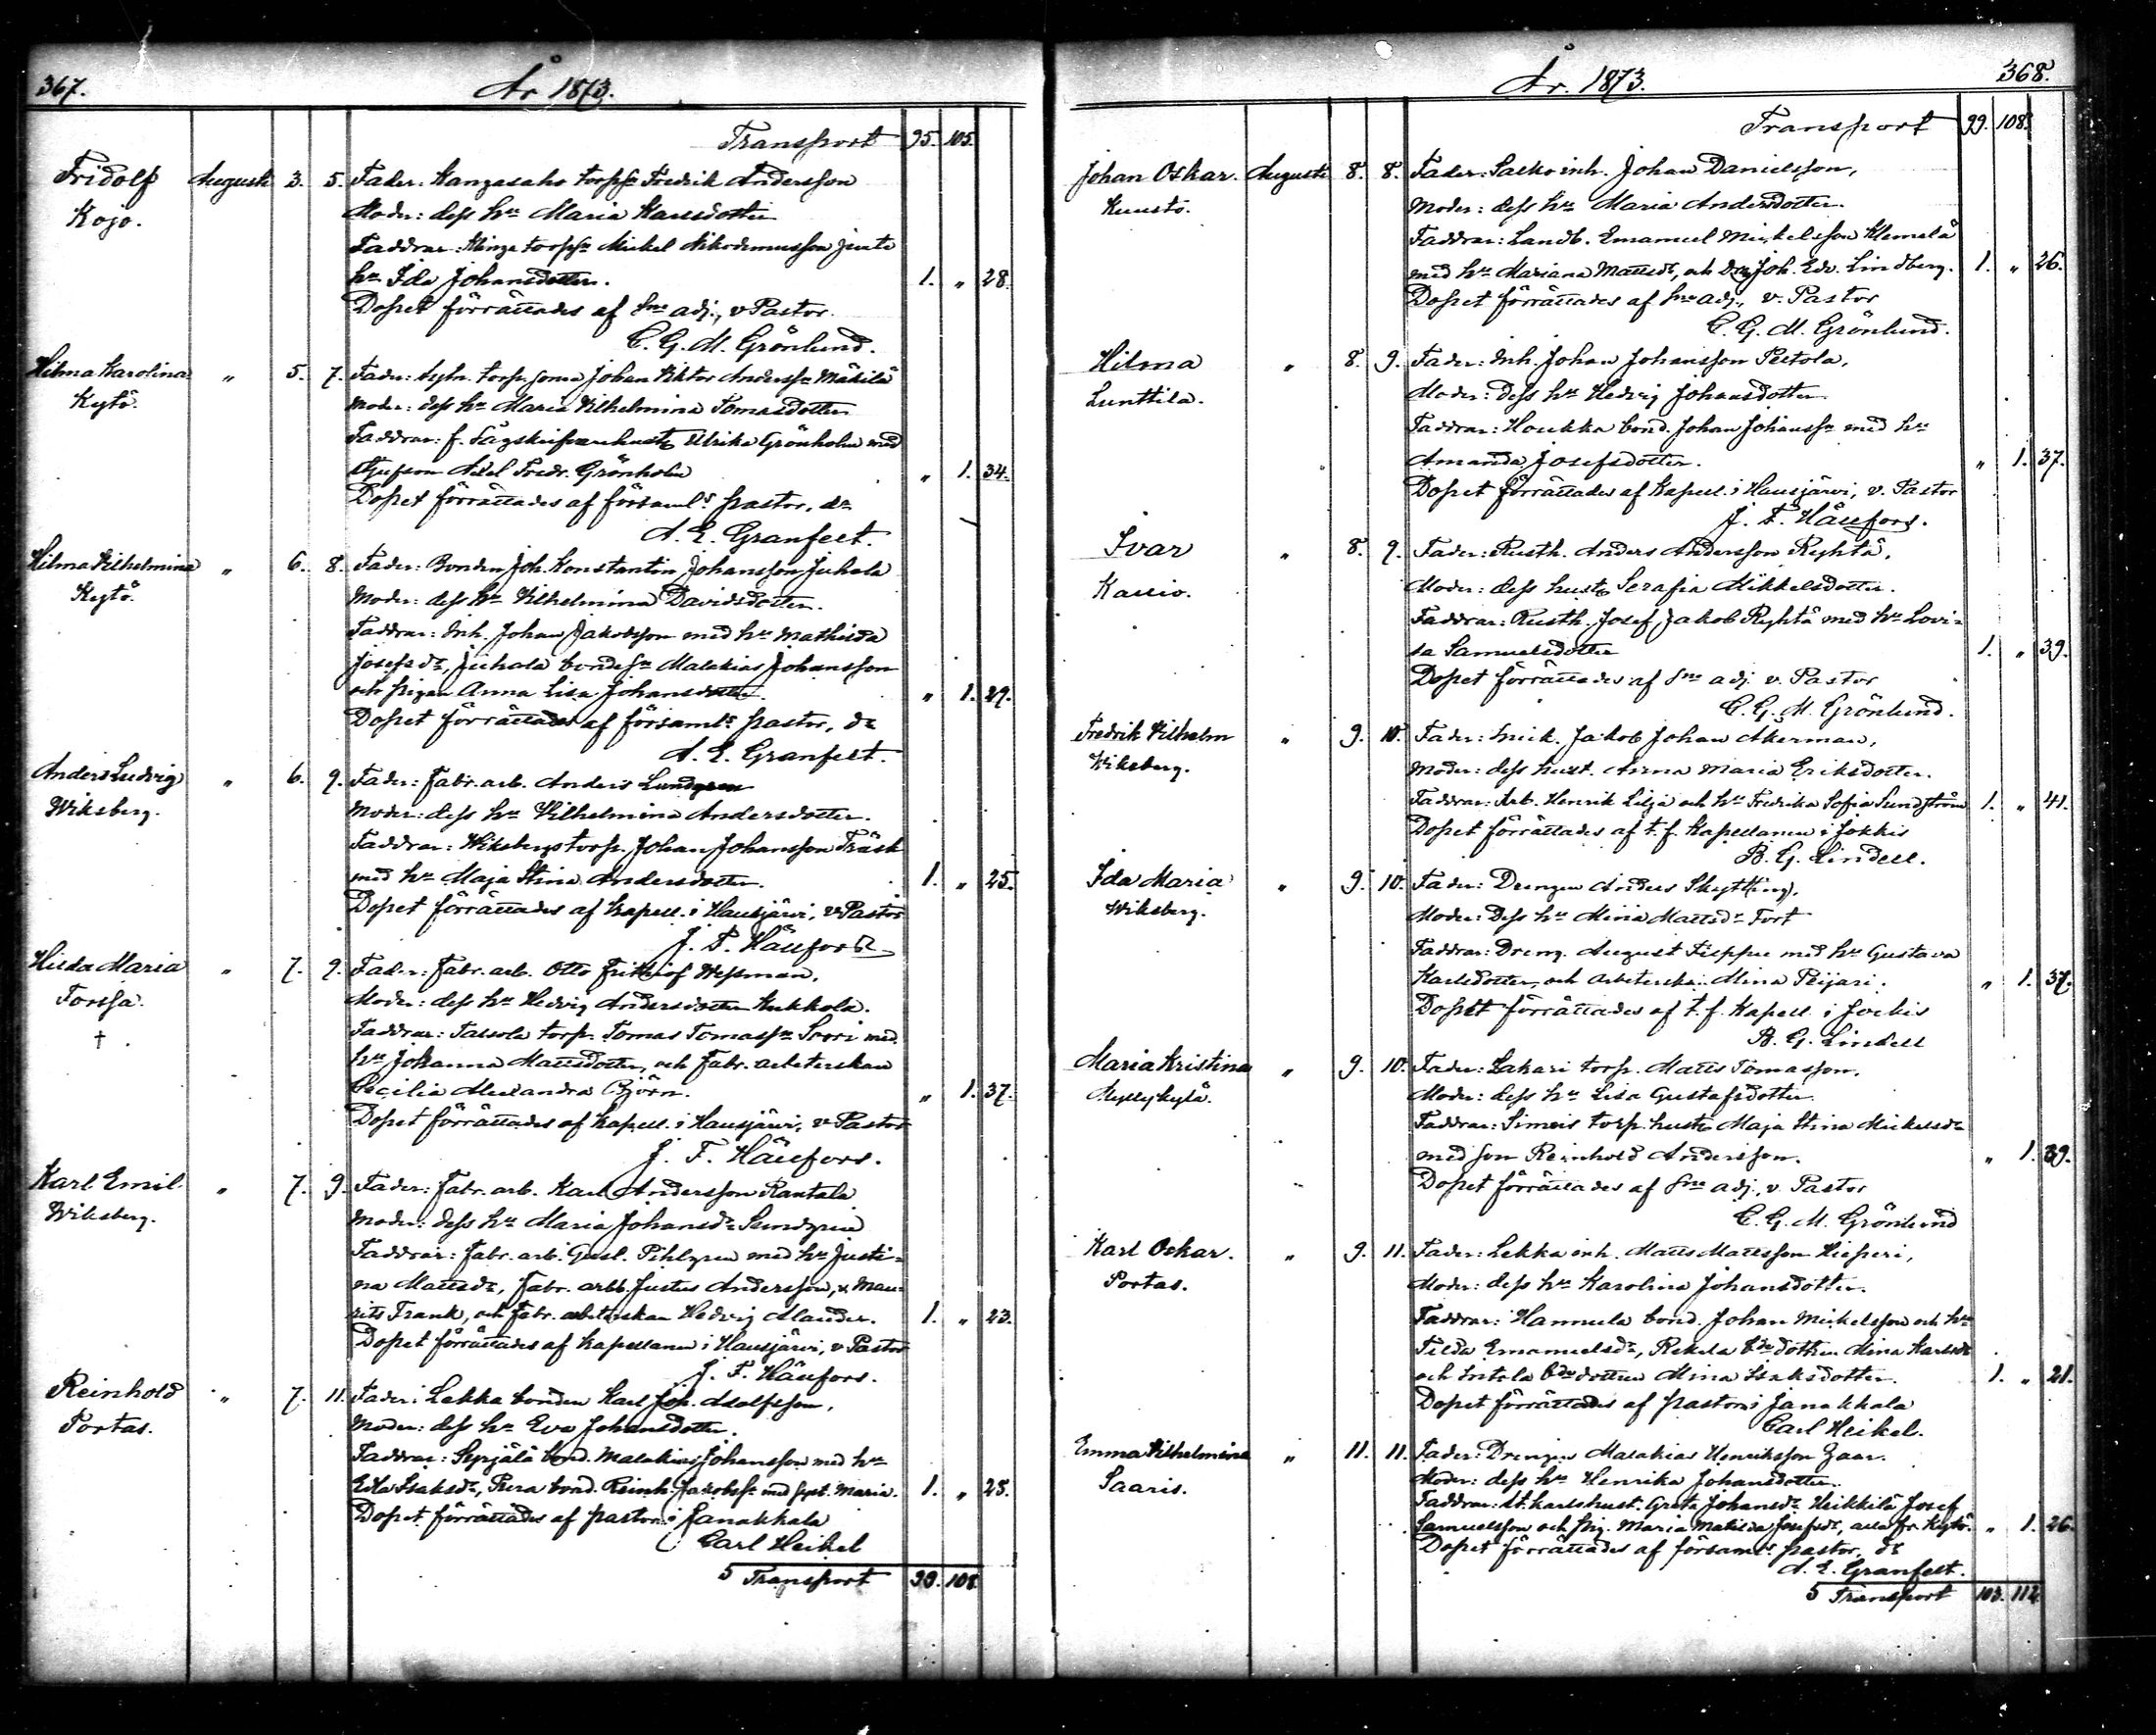 367.
År 1873.
Transport 95. 105.
Fridolf Augusti 3. 5. Fader: Kangasaho torpsn Fredrik Andersson
Kojo. Moder: dess hu Maria Karlsdotter
Faddrar: torpsn Mickel Nikodemusson jemte
hu Ida Johansdotter. 1. " 28.
Dopet förrättades af adj., v Pastor.
C. G. M. Grönlund.
Hilma Karolina " 5. 7. Fader: torp. Johan Viktor Anderssn Mäkilä
Kytö. Moder: dess hu Maria Vilhelmina Tomasdotter
Faddrar: f. Ulrika Grönholm med
Axel Fredr. Grönholm " 1. 34.
Dopet förrättades af församls pastor, dr
A. E. Granfelt.
Hilma Vilhelmina " 6. 8. Fader: Bonden Joh. Konstantin Johansson Juhala
Kytö. Moder: dess hu Vilhelmina Davidsdotter.
Faddrar: Inh. Johan Jakobsson med hu Mathilda
Josefsdr, Juhala bondesn Malakias Johansson
och pigan Anna Lisa Johansdotter. " 1. 29.
Dopet förrättades af församls pastor, dr
A. E. Granfelt.
Anders Ludvig " 6. 9. Fader: Fabr. arb. Anders Lundgren
Wiksberg. Moder: dess hu Vilhelmina Andersdotter.
Faddrar: Wiksbergs torp. Johan Johansson Träsk
med hu Maja Stina Andersdotter. 1. " 25.
Dopet förrättades af kapell. i Hausjärvi, v Pastor
J. F. Häufors
Hilda Maria " 7. 9. Fader: Fabr. arb. Otto Frithiof Wessman.
Forssa. Moder: dess hu Hedvig Andersdotter Kukkola.
† Faddrar: torp. Tomas Tomassn med
hu Johanna Mattsdotter, och Fabr. arbeterskan
Cecilia Alexandra Björn. " 1. 37.
Dopet förrättades af kapell. i Hausjärvi, v Pastor
J. F. Häufors.
Karl Emil " 7. 9. Fader: Fabr. arb. Karl Andersson Rantala
Wiksberg. Moder: dess hu Maria Johansdr Lundgren
Faddrar: Fabr. arb. Gust. Pihlgren med hu Justi-
na Mattsdr, Fabr. arbb. Justus Andersson, & Mau-
rits Frank, och Fabr. arbeterskan Hedvig Alander. 1. " 23.
Dopet förrättades af kapellanen i Hausjärvi, v Pastor
J. F. Häufors.
Reinhold " 7. 11. Fader: Lekka bonden Karl Joh. Adolfsson,
Portas. Moder: dess hu Eva Johansdotter.
Faddrar: Syrjälä bond. Malakias Johansson med hu
Edla Isaksdr, bond. Reinh. Jakobssn med Maria. 1. " 28.
Dopet förrättades af pastorn i Janakkala
Carl Heikel
5 Transport 99. 108.
År. 1873.
368.
Transport 99. 108.
Johan Oskar. Augusti 8. 8. Fader: inh. Johan Danielsson,
Kuusto. Moder: dess hu Maria Andersdotter.
Faddrar: Landb. Emanuel Mickelsson Klemelä
med hu Mariana Mattsdr, och Joh. Edv. Lindberg. 1. " 26.
Dopet förrättades af adj., v. Pastor
C. G. M. Grönlund.
Hilma " 8. 9. Fader: Inh. Johan Johansson Peltola,
Lunttila. Moder: Dess hu Hedvig Johansdotter.
Faddrar: Houkka bond. Johan Johanssn med hu
Amanda Josefsdotter. " 1. 37.
Dopet förrättades af kapell. i Hausjärvi, v. Pastor
J. F. Häufors.
Ivar " 8. 9. Fader: Rusth. Anders Andersson Ryhtä,
Kassio. Moder: dess hust. Serafia Mikkelsdotter.
Faddrar: Rusth. Josef Jakob Ryhtä med hu Lovi-
sa Samuelsdotter 1. " 39.
Dopet förrättades af adj. v. Pastor
C. G. M. Grönlund.
Fredrik Vilhelm " 9. 10. Fader: Snick. Jakob Johan Åkerman,
Wiksberg. Moder: dess hust. Anna Maria Eriksdotter.
Faddrar: Arb. Henrik Lilja och hu Fredrika Sofia Sundström 1. " 41.
Dopet förrättades af t. f. Kapellanen i Jokkis
B. G. Lindell.
Ida Maria " 9. 10. Fader: Drengen Anders Skytt(ing),
Wiksberg. Moder: Dess hu Miina Mattsdr Fort
Faddrar: Dreng. August Pieppu med hu Gustava
Karlsdotter, och arbeterska Mina Peijari. " 1. 37.
Dopet förrättades af t. f. Kapell. i Jockis
B. G. Lindell
Maria Kristina " 9. 10. Fader: Sakari torp. Matts Tomasson.
Myllykylä. Moder: dess hu Lisa Gustafsdotter.
Faddrar: Simois torp. hustr Maja Stina Mickelsdr
med son Reinhold Andersson. " 1. 39.
Dopet förrättades af adj., v. Pastor
C. G. M. Grönlund
Karl Oskar. " 9. 11. Fader: Lekka inh. Matts Mattsson Hieperi,
Portas. Moder: dess hu Karolina Johansdotter.
Faddrar: Hannula bond. Johan Mickelsson och hu
Tilda Emanuelsdr, Rekola dotter Mina Karlsdr
och Intola dotter Mina Isaksdotter. 1. " 21.
Dopet förrättades af pastorn i Janakkala
Carl Heikel.
Emma Vilhelmina " 11. 11. Fader: Drengen Malakias Henriksson
Saaris. Moder: dess hu Henrika Johansdotter.
Faddrar: hust. Greta Johansdr Heikkilä Josef
Samuelsson och pig. Maria Matilda Josefsdr, alla fr Kytö. " 1. 26.
Dopet förrättades af församls pastor, dr
A. E. Granfelt.
5 Transport 103. 112.